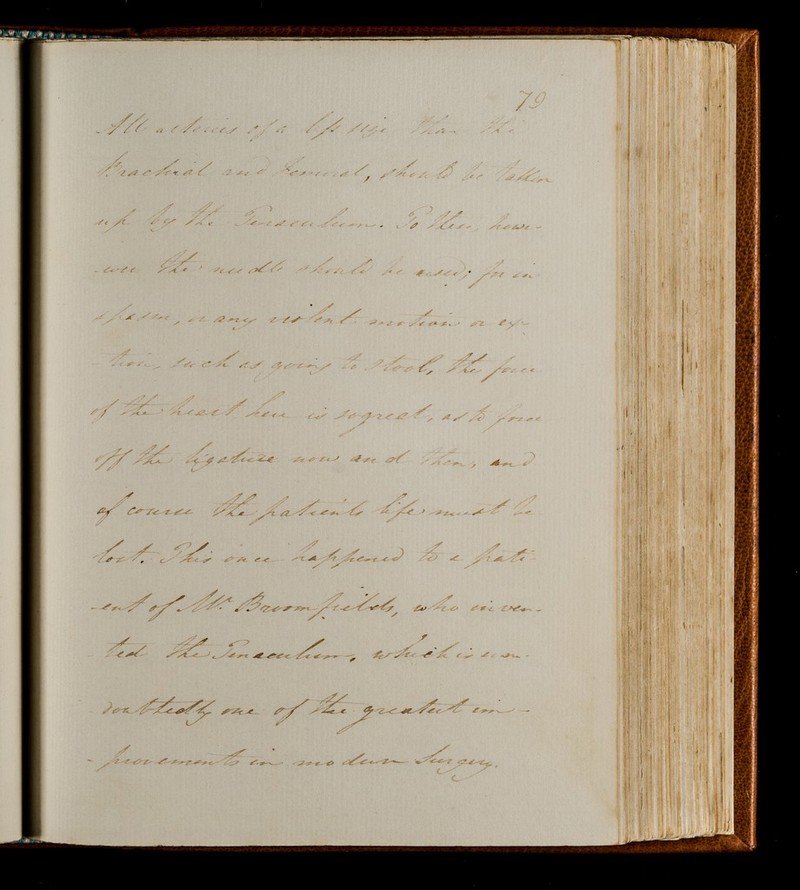 79
All arteries of a less size than the
Brachial and Femoral, should be taken
up by the Tenaculum. To them, howe-
-ver the needle should be used; for in
spasm, or any violent motion or ex-
-tion, such as going to stool, the force
of the heart here is so great, as to force
off the ligature now and then, and
of course the patients life must be
lost. This once happened to a pati-
-ent of Mr. Broomfields, who inven-
ted the Tenaculum, which is un-
doubtedly one of the greatest im-
-provements in modern Surgery.